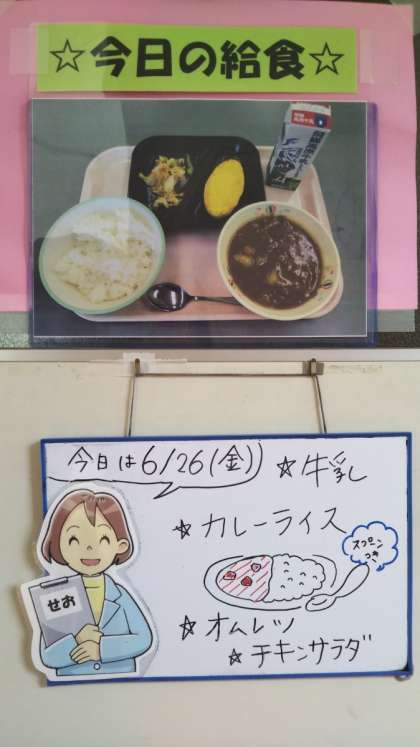 ☆今日の給食☆
今日は6/26(金)
☆牛乳
☆カレーライス
スプーン
つき
☆オムレツ
☆チキンサラダ
せお